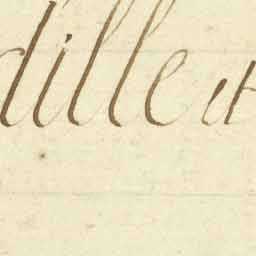 dille et